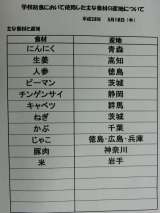 学校給食において使用した主な食材の産地について
平成28年 5月18日（水）
主な食材と産地
食材 産地
にんにく 青森
生姜 高知
人参 徳島
ピーマン 茨城
チンゲンサイ 静岡
キャベツ 群馬
ねぎ 茨城
かぶ 千葉
じゃこ 徳島・広島・兵庫
豚肉 神奈川
米 岩手